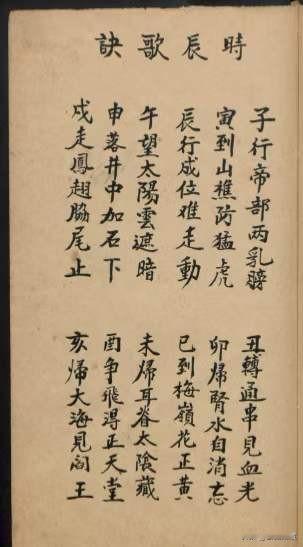 時辰歌訣
子行帝部两乳膀 丑轉通串見血光
寅到山樵防猛虎 卯歸腎水自消忘
辰行成位难走動 巳到梅嶺花正黄
午望太陽雲遮暗 未歸耳脊太陰藏
申落井中加石下 酉争飛得正天堂
戍走鳳翅脇尾止 亥歸大海見阎王